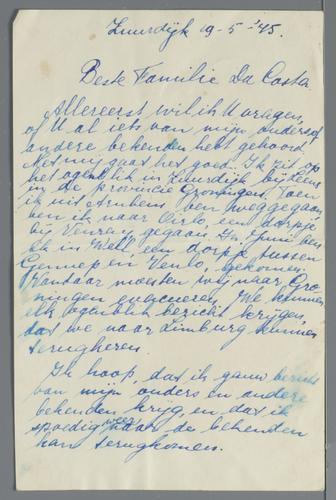 Zuurdijk 19-5-'45.
Beste Familie Da Costa
Allereerst wil ik U vragen,
of U al iets van mijn ouders of
andere bekenden hebt gehoord.
Met mij gaat het goed. Ik zit op
het ogenblik in Zuurdijk, bij Leens
in de provincie Groningen. Toen
ik uit Arnhem ben weggegaan
ben ik naar Oirlo, een dorpje
bij Venray, gegaan. In Juni ben
ik in Well, een dorp tussen
Gennep en Venlo, gekomen.
Vandaar moesten wij naar Gro-
ningen evacueren. We kunnen
elk ogenblik bericht krijgen,
dat we naar Limburg kunnen
terugkeren.
Ik hoop, dat ik gauw bericht
van mijn ouders en andere
bekenden krijg, en dat ik
spoedig weer naar de bekenden
kan terugkomen.